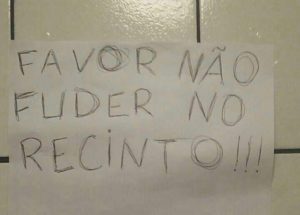 FAVOR NÃO
FUDER NO
RECiNTO!!!